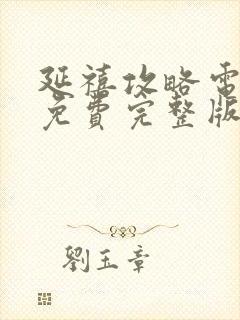 延禧攻略電
免費完整版
劉玉章